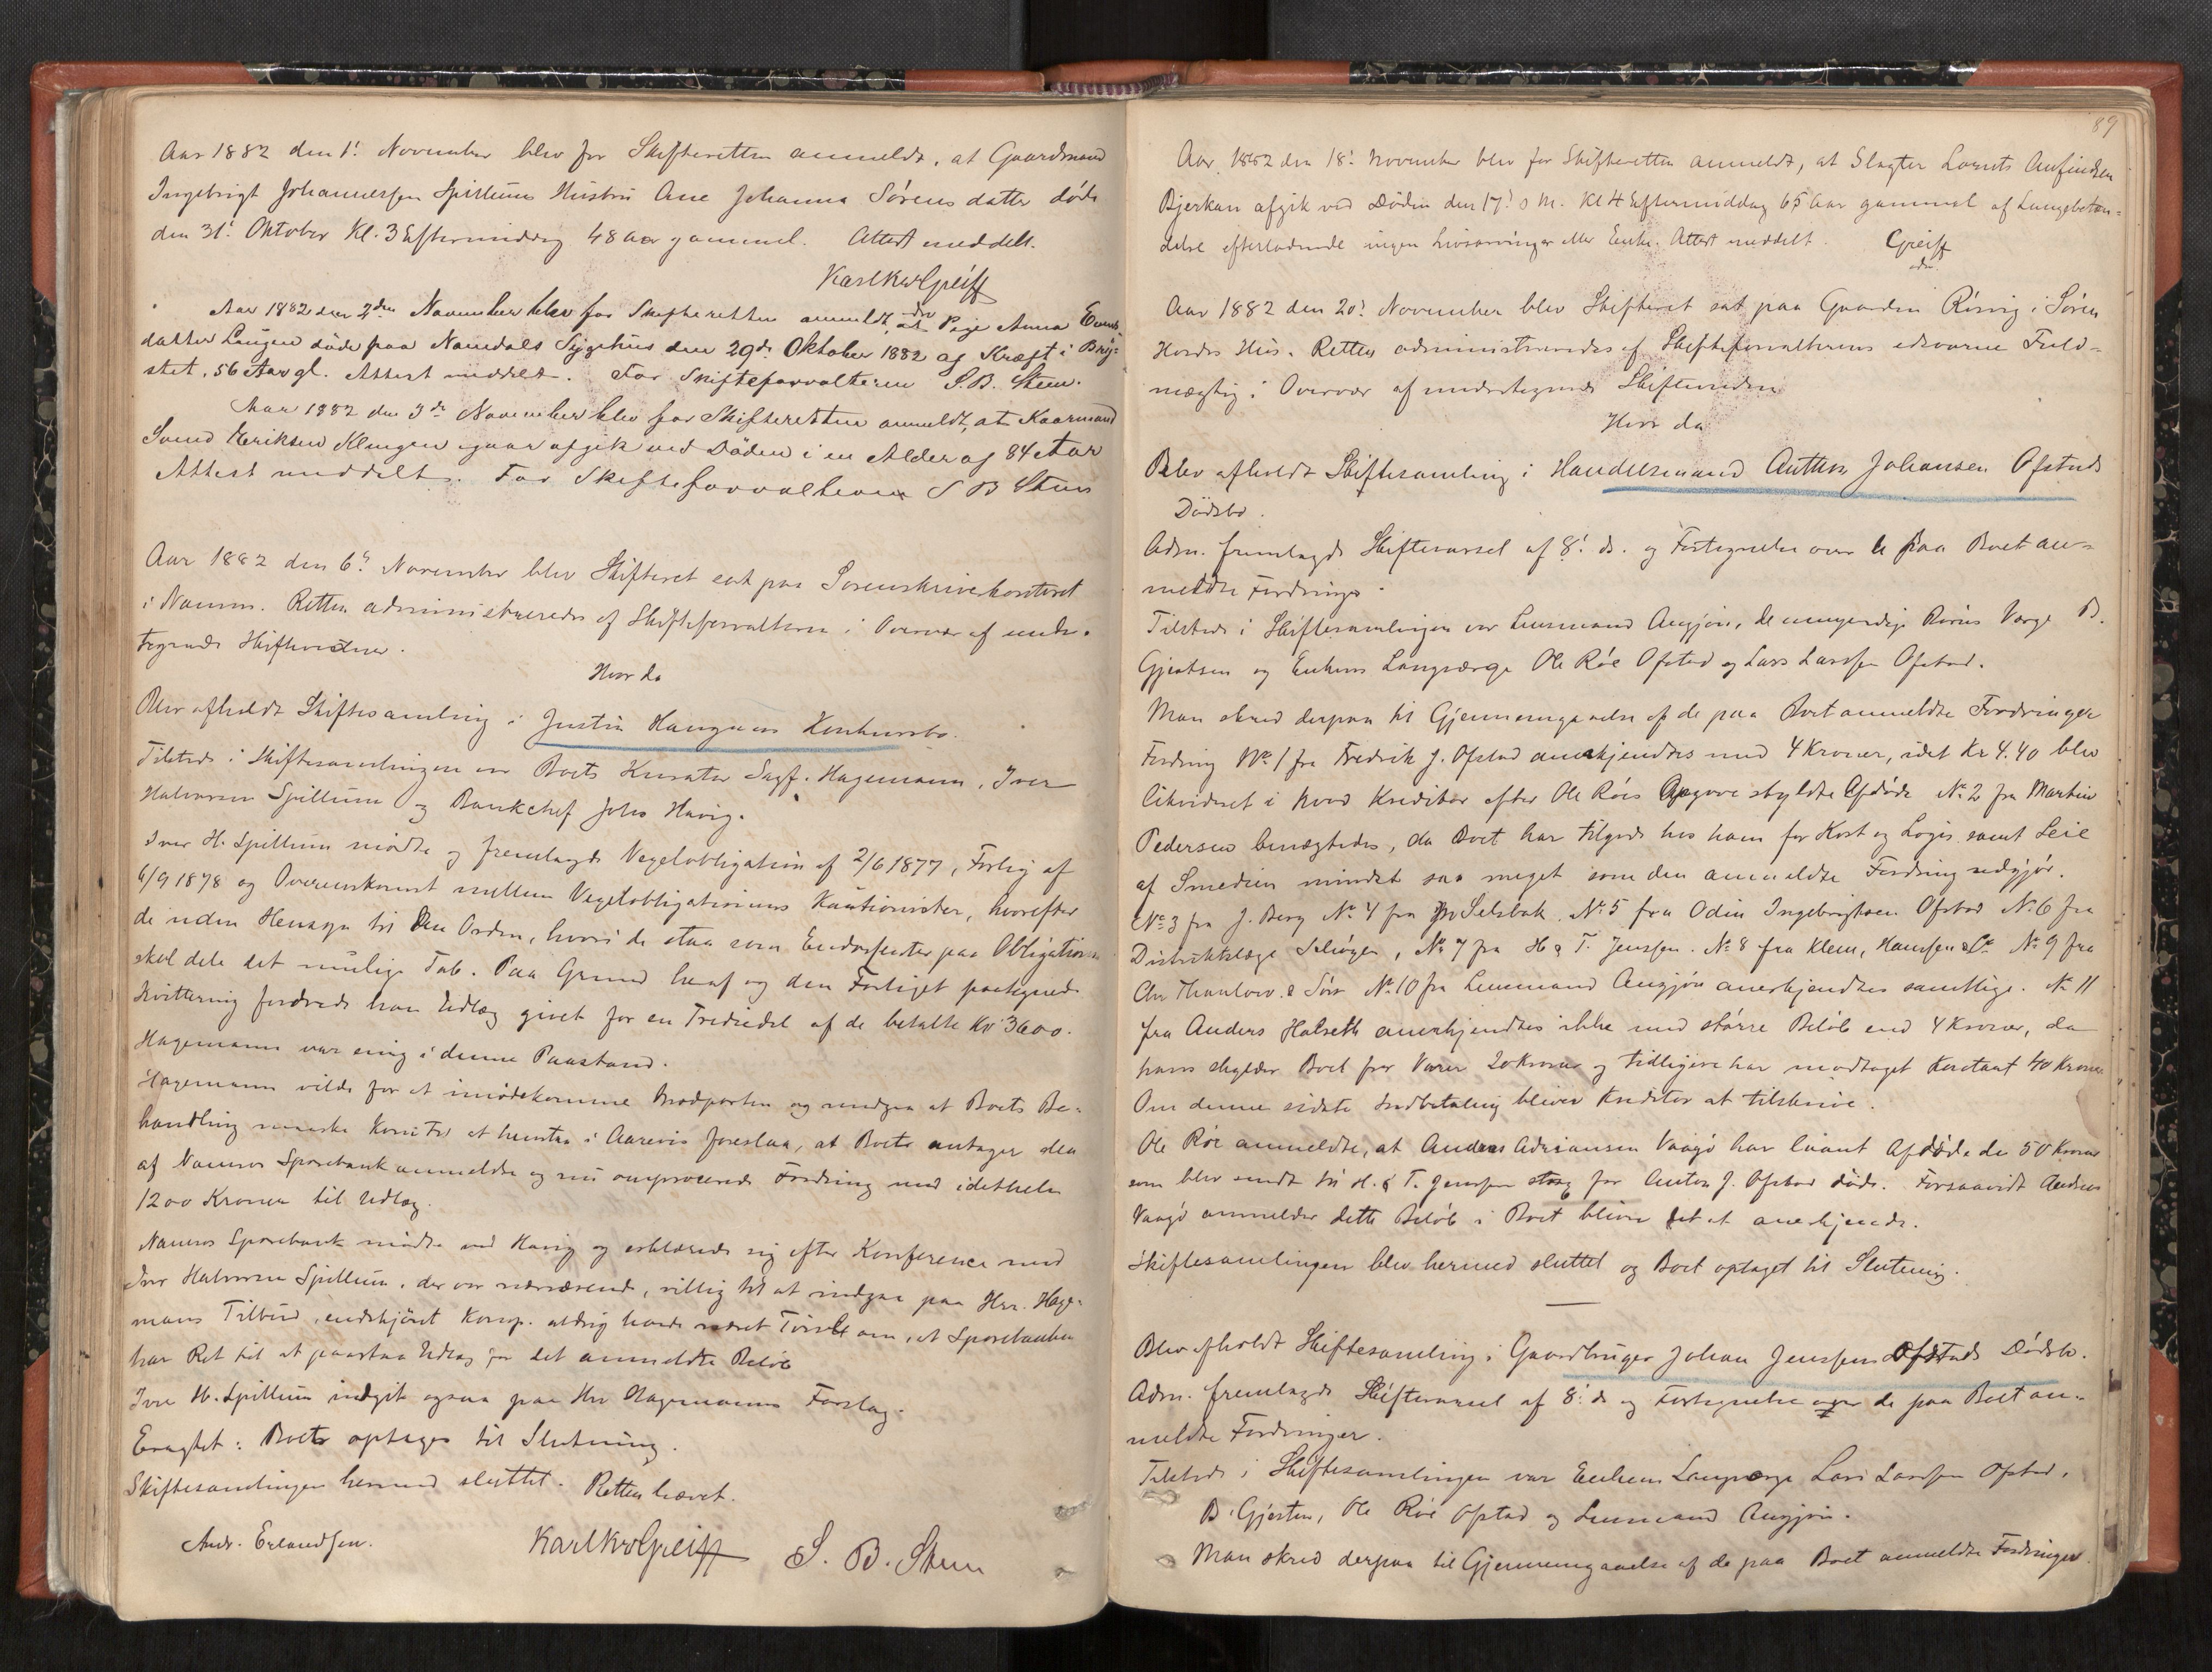 Aar 1882 den 1ʼ November blev for Skifteretten anmeldt, at Gaardmand
Ingebrigt Johannessen Spillums Hustru Ane Johanna Sørensdatter døde
den 31ʼ Oktober Kl. 3 Eftermiddag 48 Aar gammel. Attest meddelt.
Karl Kr. Greiff
Aar 1882 den 2den November blev for Skifteretten anmeldt, at Pige Anna
datter Laugen døde paa Namdals Sygehus den 29de Oktober 1882 af Kræft i Bry-
stet, 56 Aar gl. Attest meddelt. For Skifteforvalteren S. B. Steen.
Aar 1882 den 3de November blev for Skifteretten anmeldt, at Kaarmand
Svend Eriksen Klingen igaar afgik ved Døden i en Alder af 84 Aar
Attest meddelt. For Skifteforvalteren S B Steen
Aar 1882 den 6ʼ November blev Skifteret sat paa Sorenskriverkontoret
i Namsos. Retten administreredes af Skifteforvalteren i Overvær af under-
tegnede Skiftevidner.
Hvor da
Blev afholdt Skiftesamling i Justin Haugans Konkursbo.
Tilstede i Skiftesamlingen var Boets Kurator Sagf. Hagemann, Iver
Halvorsen Spillum og Bankchef Johs Havig.
Iver H. Spillum mødte og fremlagde Vexelobligation af 2/6 1877, Forlig af
6/9 1878 og Overenskomst mellem Vexelobligationens Kautionister, hvorefter
de uden Hensyn til den Orden, hvori de staa som Endossenter paa Obligationen
skal dele det mulige Tab. Paa Grund heraf og den Forliget paategnede
Kvittering fordrede han Udlæg givet for en Trediedel af de betalte Kr 3600.
Hagemann var enig i denne Paastand.
Hagemann vilde for at imødekomme Modparten og undgaa at Boets Be-
handling maaske kom til at henstaa i Aarevis foreslaa, at Boet antager den
af Namsos Sparebank anmeldte og nu omprocerede Fordring med idethele
1200 Kroner til Udlæg.
Namsos Sparebank mødte ved Havig og erklærede sig efter Konference med
Iver Halvorsen Spillum, der var nærværende, villig til at indgaa paa Hr. Hage-
manns Tilbud, endskjønt Komp. aldrig havde næret Tvivl om, at Sparebanken
har Ret til at paastaa Udlæg for det anmeldte Beløb
Iver H. Spillum indgik ogsaa paa Hr Hagemanns Forslag.
Eragtet: Boet optages til Slutning.
Skiftesamlingen hermed sluttet. Retten hævet.
Andr. Erlandsen. Karl Kr Greiff S. B. Steen
89
Aar 1882 den 18ʼ November blev for Skifteretten anmeldt, at Slagter Lornts Anfindsen
Bjerkan afgik ved Døden den 17ʼ d M. Kl 4 Eftermiddag 65 Aar gammel af Lungebetæn-
delse efterladende ingen Livsarvinger eller Enke. Attest meddelt. Greiff
Aar 1882 den 20ʼ November blev Skifteret sat paa Gaarden Rørvig i Søren
Hus. Retten administreredes af Skifteforvalterens edsvorne Fuld-
mægtig i Overvær af undertegnede Skiftevidner
Hvor da
Blev afholdt Skiftesamling i Handelsmand Anthon Johansen Ofstads
Dødsbo.
Adm. fremlagde Skiftevarsel af 8ʼ ds. og Fortegnelse over de paa Boet an-
meldte Fordringer
Tilstede i Skiftesamlingen var Lensmand Angjøn, de umyndige Børns Værge B.
Gjertsen og Enkens Laugværge Ole Røe Ofstad og Lars Larssen Ofstad.
Man skred derpaa til Gjennemgaaelse af de paa Boet anmeldte Fordringer
Fordring No 1 fra Fredrik J. Ofstad anerkjendtes med 4 Kroner, idet Kr 4.40 blev
likvideret i hvad Kreditor efter Ole Røes Opgave skyldte Afdøde No 2 fra Martin
Pedersen benægtedes, da Boet har tilgode hos ham for Kost og Logis samt Leie
af Smedien mindst saa meget som den anmeldte Fordring udgjør.
No 3 fra J. Berg No 4 fra Selsbak. No 5 fra Odin Ingebrigtsen Ofstad No 6 fra
Distriktslæge , No 7 fra H & T. Jenssen. No 8 fra Klem, Hanssen & Co No 9 fra
Chr Thaulow & Søn No 10 fra Lensmand Angjøn anerkjendtes samtlige. No 11
fra Anders Halseth anerkjendtes ikke med større Beløb end 4 Kroner, da
han skylder Boet for Varer 20 Kroner og tidligere har modtaget Kontant 40 Kroner
Om denne sidste Indbetaling bliver Kreditor at tilskrive.
Ole Røe anmeldte, at Anders Adriansen Vaagø har laant Afdøde de 50 Kroner
som blev sendt til H. & T. Jenssen strax før Anton J. Ofstad døde. Forsaavidt Anders
Vaagø anmelder dette Beløb i Boet bliver det at anerkjende.
Skiftesamlingen blev hermed sluttet og Boet optaget til Slutning.
Blev afholdt Skiftesamling i Gaardbruger Johan Jenssens Ofstads Dødsbo.
Adm. fremlagde Skiftevarsel af 8ʼ ds og Fortegnelse over de paa Boet an-
meldte Fordringer.
Tilstede i Skiftesamlingen var Enkens Laugværge Lars Larssen Ofstad,
B. Gjertsen, Ole Røe Ofstad og Lensmand Angjøn.
Man skred derpaa til Gjennemgaaelse af de paa Boet anmeldte Fordringer.